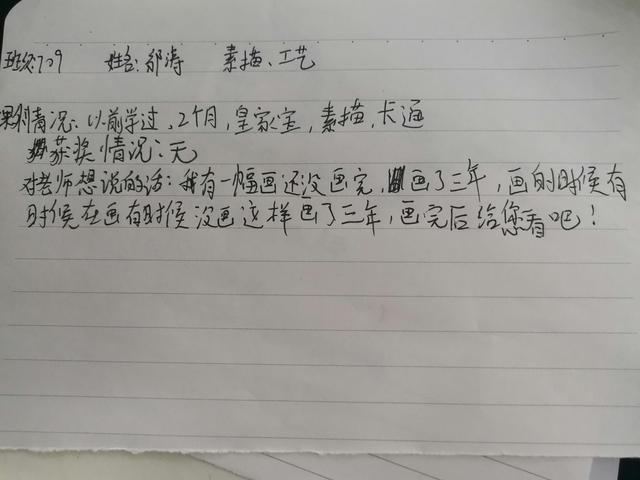 班级:709 姓名:邹涛 素描、工艺
情况:以前学过,2个月,皇家宝,素描,卡通
获奖情况:无
对老师想说的话:我有一幅画还没画完,画了三年,画的时候有
时候在画有时候没画这样画了三年,画完后给您看吧!